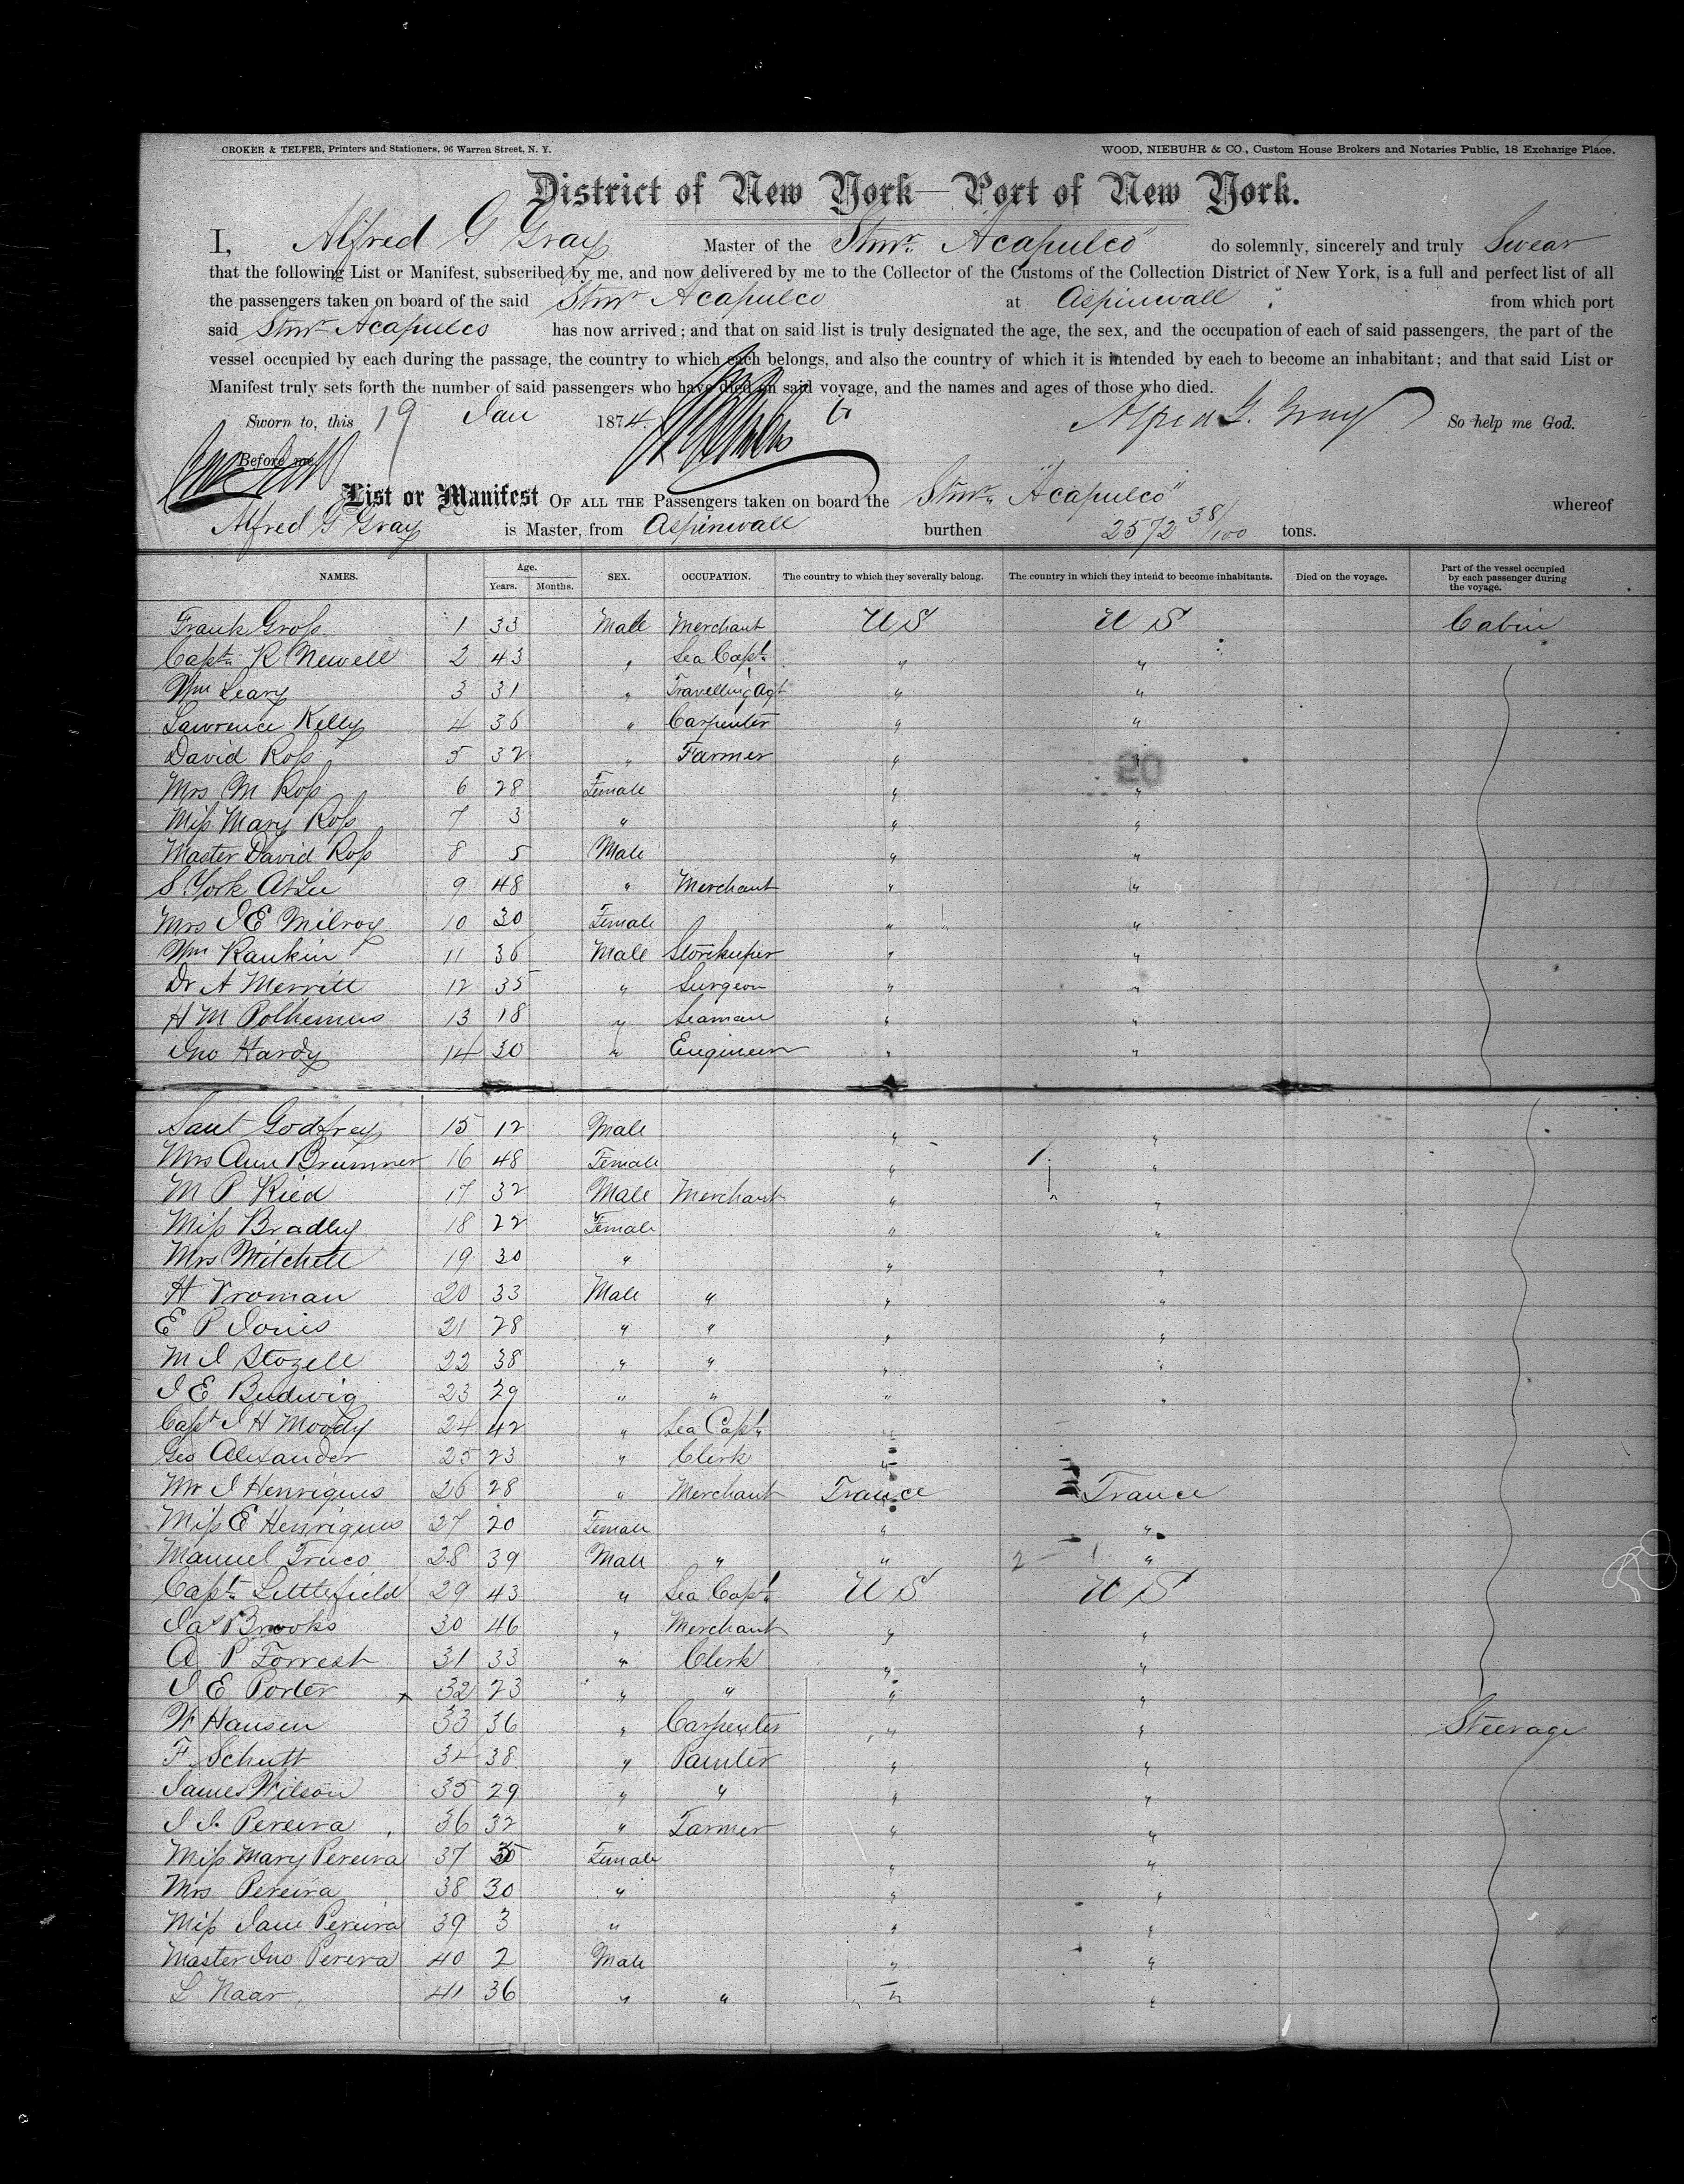 CROKER & TELFER, Printers and Stationers, 96 Warren Street, N. Y. WOOD, NIEBUHR & CO., Custom House Brokers and Notaries Public, 18 Exchange Place.
District of New York—Port of New York.
I, Alfred G Gray Master of the Stmr. "Acapulco" do solemnly, sincerely and truly Swear
that the following List or Manifest, subscribed by me, and now delivered by me to the Collector of the Customs of the Collection District of New York, is a full and perfect list of all
the passengers taken on board of the said Stmr Acapulco at Aspinwall from which port
said Stmr Acapulco has now arrived; and that on said list is truly designated the age, the sex, and the occupation of each of said passengers, the part of the
vessel occupied by each during the passage, the country to which each belongs, and also the country of which it is intended by each to become an inhabitant; and that said List or
Manifest truly sets forth the number of said passengers who have died on said voyage, and the names and ages of those who died.
Sworn to, this 19 Jan 1874. Alfred G. Gray So help me God.
Before me
List or Manifest OF ALL THE Passengers taken on board the Stmr "Acapulco" whereof
Alfred G Gray is Master, from Aspinwall burthen 2572 38/100 tons.
NAMES. Age. Years. Months. SEX. OCCUPATION. The country to which they severally belong. The country in which they intend to become inhabitants. Died on the voyage. Part of the vessel occupied by each passenger during the voyage.
Frank Gross 1 33 Male Merchant U S U S Cabin
Captn R Newell 2 43 " Sea Captn " "
Wm Leary 3 31 " Travelling Agt " "
Lawrence Kelly 4 36 " Carpenter " "
David Ross 5 32 " Farmer " "
Mrs M Ross 6 28 Female " "
Miss Mary Ross 7 3 " " "
Master David Ross 8 5 Male " "
S York AtLee 9 48 " Merchant " "
Mrs J E Milroy 10 30 Female " "
Wm Rankin 11 36 Male Storekeeper " "
Dr A Merritt 12 35 " Surgeon " "
H M Polhemus 13 18 " Seaman " "
Jno Hardy 14 30 " Engineer " "
Saml Godfrey 15 12 Male " "
Mrs Ann Brummer 16 48 Female " "
M P Ried 17 32 Male Merchant " "
Miss Bradley 18 22 Female " "
Mrs Mitchell 19 30 " " "
H Vroman 20 33 Male " " "
E P Jones 21 28 " " " "
M J Stozell 22 38 " " " "
J E Budwig 23 29 " " " "
Capt J H Moody 24 42 " Sea Captn "
Geo Alexander 25 23 " Clerk "
Mr J Henriques 26 28 " Merchant France France
Miss E Henriques 27 20 Female " "
Manuel Truco 28 39 Male " " "
Captn Littlefield 29 43 " Sea Captn U S U S
Jas Brooks 30 46 " Merchant " "
A P Forrest 31 33 " Clerk " "
J E Porter 32 23 " " " "
W Hansen 33 36 " Carpenter " " Steerage
F Schutt 34 38 " Painter " "
James Wilson 35 29 " " " "
J J. Pereira 36 32 " Farmer " "
Miss Mary Pereira 37 Female " "
Mrs Pereira 38 30 " " "
Miss Jane Pereira 39 3 " " "
Master Jno Pereira 40 2 Male " "
L Naar 41 36 " " " "